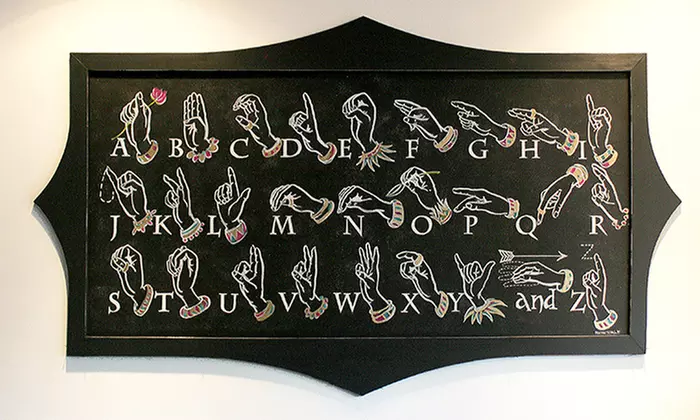 A B C D E F G H I
J K L M N O P Q R
S T U V W X Y and Z
Z